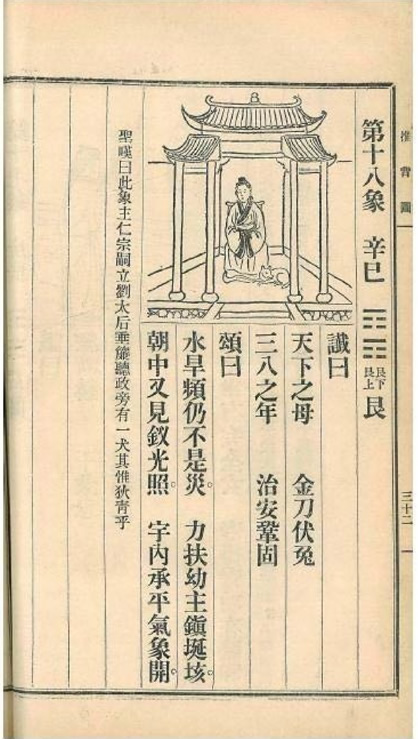 推背圖
三十二
第十八象 辛巳 ䷳ 艮下艮上 艮
讖曰
天下之母 金刀伏兔
三八之年 治安鞏固
頌曰
水旱頻仍不是災。 力扶幼主鎮埏垓。
朝中又見釵光照。 宇內承平氣象開。
聖嘆曰此象主仁宗嗣立劉太后垂簾聽政旁有一犬其惟狄青乎